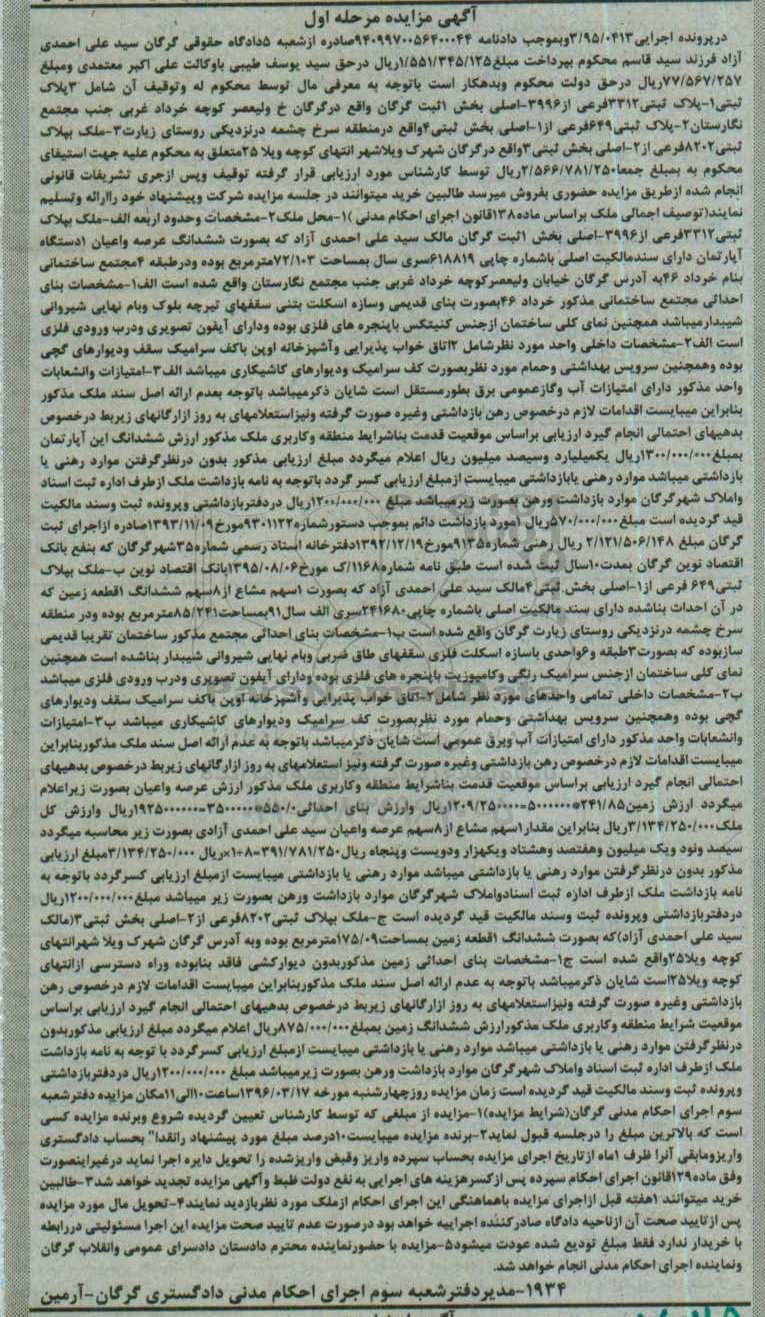 آگهی مزایده مرحله اول
درپرونده اجرایی۳/۹۵/۰۴۱۳وبموجب دادنامه ۹۴۰۹۹۷۰۰۵۶۴۰۰۰۴۴صادره ازشعبه ۵دادگاه حقوقی گرگان سید علی احمدی
آزاد فرزند سید قاسم محکوم بپرداخت مبلغ۱/۵۵۱/۳۴۵/۱۲۵ریال درحق سید یوسف طیبی باوکالت علی اکبر معتمدی ومبلغ
۷۷/۵۶۷/۲۵۷ریال درحق دولت محکوم وبدهکار است باتوجه به معرفی مال توسط محکوم له وتوقیف آن شامل ۳پلاک
ثبتی۱-پلاک ثبتی۳۳۱۲فرعی از۳۹۹۶-اصلی بخش ۱ثبت گرگان واقع درگرگان خ ولیعصر کوچه خرداد غربی جنب مجتمع
نگارستان۲-پلاک ثبتی۶۴۹فرعی از۱-اصلی بخش ثبتی۴واقع درمنطقه سرخ چشمه درنزدیکی روستای زیارت۳-ملک بپلاک
ثبتی۸۲۰۲فرعی از۲-اصلی بخش ثبتی۳واقع درگرگان شهرک ویلاشهر انتهای کوچه ویلا ۲۵متعلق به محکوم علیه جهت استیفای
محکوم به بمبلغ جمعا۲/۵۶۶/۷۸۱/۲۵۰ریال توسط کارشناس مورد ارزیابی قرار گرفته توقیف وپس ازجری تشریفات قانونی
انجام شده ازطریق مزایده حضوری بفروش میرسد طالبین خرید میتوانند در جلسه مزایده شرکت وپیشنهاد خود راارائه وتسلیم
نمایند(توصیف اجمالی ملک براساس ماده۱۳۸قانون اجرای احکام مدنی )۱-محل ملک۲-مشخصات وحدود اربعه الف-ملک بپلاک
ثبتی۳۳۱۲فرعی از۳۹۹۶-اصلی بخش ۱ثبت گرگان مالک سید علی احمدی آزاد که بصورت ششدانگ عرصه واعیان ۱دستگاه
آپارتمان دارای سندمالکیت اصلی باشماره چاپی ۶۱۸۸۱۹سری سال بمساحت ۷۲/۱۰۳مترمربع بوده ودرطبقه ۴مجتمع ساختمانی
بنام خرداد ۴۶به آدرس گرگان خیابان ولیعصرکوچه خرداد غربی جنب مجتمع نگارستان واقع شده است الف۱-مشخصات بنای
احداثی مجتمع ساختمانی مذکور خرداد ۴۶بصورت بنای قدیمی وسازه اسکلت بتنی سقفهای تیرچه بلوک وبام نهایی شیروانی
شیبدارمیباشد همچنین نمای کلی ساختمان ازجنس کنیتکس باپنجره های فلزی بوده ودارای آیفون تصویری ودرب ورودی فلزی
است الف۲-مشخصات داخلی واحد مورد نظرشامل ۲اتاق خواب پذیرایی وآشپزخانه اوپن باکف سرامیک سقف ودیوارهای گچی
بوده وهمچنین سرویس بهداشتی وحمام مورد نظربصورت کف سرامیک ودیوارهای کاشیکاری میباشد الف۳-امتیازات وانشعابات
واحد مذکور دارای امتیازات آب وگازعمومی برق بطورمستقل است شایان ذکرمیباشد باتوجه بعدم ارائه اصل سند ملک مذکور
بنابراین میبایست اقدامات لازم درخصوص رهن بازداشتی وغیره صورت گرفته ونیزاستعلامهای به روز ازارگانهای زیربط درخصوص
بدهیهای احتمالی انجام گیرد ارزیابی براساس موقعیت قدمت بناشرایط منطقه وکاربری ملک مذکور ارزش ششدانگ این آپارتمان
بمبلغ۱۳۰۰/۰۰۰/۰۰۰ریال یکمیلیارد وسیصد میلیون ریال اعلام میگردد مبلغ ارزیابی مذکور بدون درنظرگرفتن موارد رهنی یا
بازداشتی میباشد موارد رهنی یابازداشتی میبایست ازمبلغ ارزیابی کسر گردد باتوجه به نامه بازداشت ملک ازطرف اداره ثبت اسناد
واملاک شهرگرگان موارد بازداشت ورهن بصورت زیرمیباشد مبلغ ۱۲۰۰/۰۰۰/۰۰۰ریال دردفتربازداشتی وپرونده ثبت وسند مالکیت
قید گردیده است مبلغ۵۷۰/۰۰۰/۰۰۰ریال ۱مورد بازداشت دائم بموجب دستورشماره۹۳۰۱۱۲۲مورخ۱۳۹۳/۱۱/۰۹صادره ازاجرای ثبت
گرگان مبلغ ۲/۱۲۱/۵۰۶/۱۴۸ ریال رهنی شماره۹۱۳۵مورخ۱۳۹۲/۱۲/۱۹دفترخانه اسناد رسمی شماره۳۵شهرگرگان که بنفع بانک
اقتصاد نوین گرگان بمدت۱۰سال ثبت شده است طبق نامه شماره۱۱۶۸/ک مورخ۱۳۹۵/۰۸/۰۶بانک اقتصاد نوین ب-ملک بپلاک
ثبتی۶۴۹ فرعی از۱-اصلی بخش ثبتی۴مالک سید علی احمدی آزاد که بصورت ۱سهم مشاع از۸سهم ششدانگ ۱قطعه زمین که
در آن احداث بناشده دارای سند مالکیت اصلی باشماره چاپی۲۴۱۶۸۰سری الف سال۹۱بمساحت۸۵/۲۴۱مترمربع بوده ودر منطقه
سرخ چشمه درنزدیکی روستای زیارت گرگان واقع شده است ب۱-مشخصات بنای احداثی مجتمع مذکور ساختمان تقریبا قدیمی
سازبوده که بصورت۳طبقه و۶واحدی باسازه اسکلت فلزی سقفهای طاق ضربی وبام نهایی شیروانی شیبدار بناشده است همچنین
نمای کلی ساختمان ازجنس سرامیک رنگی وکامپوزیت باپنجره های فلزی بوده ودارای آیفون تصویری ودرب ورودی فلزی میباشد
ب۲-مشخصات داخلی تمامی واحدهای مورد نظر شامل۲-اتاق خواب پذیرایی وآشپزخانه اوپن باکف سرامیک سقف ودیوارهای
گچی بوده وهمچنین سرویس بهداشتی وحمام مورد نظربصورت کف سرامیک ودیوارهای کاشیکاری میباشد ب۳-امتیازات
وانشعابات واحد مذکور دارای امتیازات آب وبرق عمومی است شایان ذکرمیباشد باتوجه به عدم ارائه اصل سند ملک مذکوربنابراین
میبایست اقدامات لازم درخصوص رهن بازداشتی وغیره صورت گرفته ونیز استعلامهای به روز ازارگانهای زیربط درخصوص بدهیهای
احتمالی انجام گیرد ارزیابی براساس موقعیت قدمت بناشرایط منطقه وکاربری ملک مذکور ارزش عرصه واعیان بصورت زیراعلام
میگردد ارزش زمین۲۴۱/۸۵*۵۰۰۰۰۰۰=۱۲۰۹/۲۵۰۰۰۰ریال وارزش بنای احداثی۵۵۰/۰*۳۵۰۰۰۰۰=۱۹۲۵۰۰۰۰۰۰ریال وارزش کل
ملک۳/۱۳۴/۲۵۰/۰۰۰ریال بنابراین مقدار۱سهم مشاع از۸سهم عرصه واعیان سید علی احمدی آزادی بصورت زیر محاسبه میگردد
سیصد ونود ویک میلیون وهفتصد وهشتاد ویکهزار ودویست وپنجاه ریال۳۹۱/۷۸۱/۲۵۰=۸÷۱×ریال ۳/۱۳۴/۲۵۰/۰۰۰مبلغ ارزیابی
مذکور بدون درنظرگرفتن موارد رهنی یا بازداشتی میباشد موارد رهنی یا بازداشتی میبایست ازمبلغ ارزیابی کسرگردد باتوجه به
نامه بازداشت ملک ازطرف اداره ثبت اسنادواملاک شهرگرگان موارد بازداشت ورهن بصورت زیر میباشد مبلغ۱۲۰۰/۰۰۰/۰۰۰ریال
دردفتربازداشتی وپرونده ثبت وسند مالکیت قید گردیده است ج-ملک بپلاک ثبتی۸۲۰۲فرعی از۲-اصلی بخش ثبتی۳(مالک
سید علی احمدی آزاد)که بصورت ششدانگ ۱قطعه زمین بمساحت۱۷۵/۰۹مترمربع بوده وبه آدرس گرگان شهرک ویلا شهرانتهای
کوچه ویلا۲۵واقع شده است ج۱-مشخصات بنای احداثی زمین مذکوربدون دیوارکشی فاقد بنابوده وراه دسترسی ازانتهای
کوچه ویلا۲۵است شایان ذکرمیباشد باتوجه به عدم ارائه اصل سند ملک مذکوربنابراین میبایست اقدامات لازم درخصوص رهن
بازداشتی وغیره صورت گرفته ونیزاستعلامهای به روز ازارگانهای زیربط درخصوص بدهیهای احتمالی انجام گیرد ارزیابی براساس
موقعیت شرایط منطقه وکاربری ملک مذکورارزش ششدانگ زمین بمبلغ۸۷۵/۰۰۰/۰۰۰ریال اعلام میگردد مبلغ ارزیابی مذکوربدون
درنظرگرفتن موارد رهنی یا بازداشتی میباشد موارد رهنی یا بازداشتی میبایست ازمبلغ ارزیابی کسرگردد با توجه به نامه بازداشت
ملک ازطرف اداره ثبت اسناد واملاک شهرگرگان موارد بازداشت ورهن بصورت زیرمیباشد مبلغ ۱۲۰۰/۰۰۰/۰۰۰ریال دردفتربازداشتی
وپرونده ثبت وسند مالکیت قید گردیده است زمان مزایده روزچهارشنبه مورخه ۱۳۹۶/۰۳/۱۷ساعت۱۰الی۱۱مکان مزایده دفترشعبه
سوم اجرای احکام مدنی گرگان(شرایط مزایده)۱-مزایده از مبلغی که توسط کارشناس تعیین گردیده شروع وبرنده مزایده کسی
است که بالاترین مبلغ را درجلسه قبول نماید۲-برنده مزایده میبایست۱۰درصد مبلغ مورد پیشنهاد رانقدا" بحساب دادگستری
واریزومابقی آنرا ظرف ۱ماه ازتاریخ اجرای مزایده بحساب سپرده واریز وقبض واریزشده را تحویل دایره اجرا نماید درغیراینصورت
وفق ماده۱۲۹قانون اجرای احکام سپرده پس ازکسرهزینه های اجرایی به نفع دولت ظبط وآگهی مزایده تجدید خواهد شد۳-طالبین
خرید میتوانند ۱هفته قبل ازاجرای مزایده باهماهنگی این اجرای احکام ازملک مورد نظربازدید نمایند۴-تحویل مال مورد مزایده
پس ازتایید صحت آن ازناحیه دادگاه صادرکننده اجراییه خواهد بود درصورت عدم تایید صحت مزایده این اجرا مسئولیتی دررابطه
با خریدار ندارد فقط مبلغ تودیع شده عودت میشود۵-مزایده با حضورنماینده محترم دادستان دادسرای عمومی وانقلاب گرگان
ونماینده اجرای احکام مدنی انجام خواهد شد.
۱۹۳۴-مدیردفترشعبه سوم اجرای احکام مدنی دادگستری گرگان-آرمین